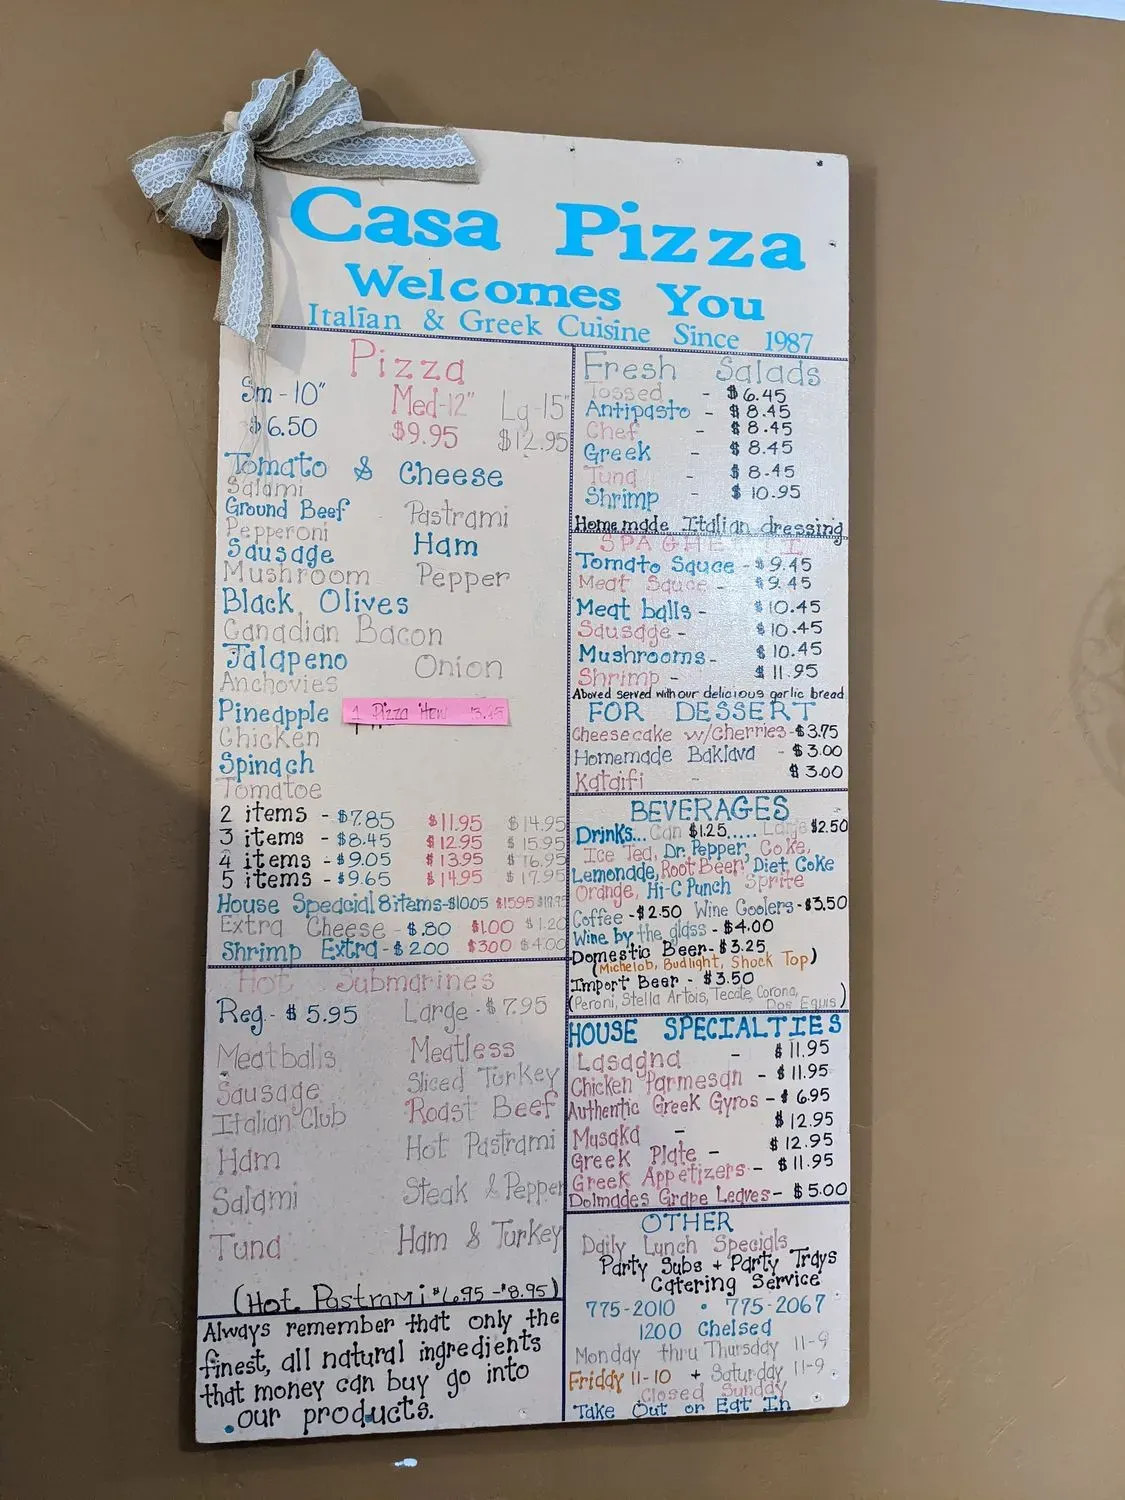 Casa Pizza
Welcomes You
Italian & Greek Cuisine Since 1987
Pizza
Sm - 10" Med-12" Lg-15"
$6.50 $9.95 $12.95
Tomato & Cheese
Salami
Ground Beef Pastrami
Pepperoni
Sausage Ham
Mushroom Pepper
Black Olives
Canadian Bacon
Jalapeno Onion
Anchovies
Pineapple 1 Pizza Item
Chicken
Spinach
Tomatoe
2 items - $7.85 $11.95 $14.95
3 items - $8.45 $12.95 $15.95
4 items - $9.05 $13.95 $16.95
5 items - $9.65 $14.95 $17.95
House Speacial 8 items - $10.05 $15.95
Extra Cheese - $.80 $1.00 $1.20
Shrimp Extra - $2.00 $3.00 $4.00
Hot Submarines
Reg.- $5.95 Large - $7.95
Meatballs Meatless
Sausage Sliced Turkey
Italian Club Roast Beef
Ham Hot Pastrami
Salami Steak & Pepper
Tuna Ham & Turkey
(Hot Pastrami $6.95 - $8.95)
Always remember that only the
finest, all natural ingredients
that money can buy go into
our products.
Fresh Salads
Tossed - $6.45
Antipasto - $8.45
Chef - $8.45
Greek - $8.45
Tuna - $8.45
Shrimp - $10.95
Homemade Italian dressing
SPAGHETTI
Tomato Sauce - $9.45
Meat Sauce - $9.45
Meat balls - $10.45
Sausage - $10.45
Mushrooms - $10.45
Shrimp - $11.95
Aboved served with our delicious garlic bread
FOR DESSERT
Cheesecake w/Cherries - $3.75
Homemade Baklava - $3.00
Kataifi - $3.00
BEVERAGES
Drinks... Can $1.25..... Large $2.50
Ice Tea, Dr. Pepper, Coke,
Lemonade, Root Beer, Diet Coke
Orange, Hi-C Punch Sprite
Coffee - $2.50 Wine Coolers - $3.50
Wine by the glass - $4.00
Domestic Beer - $3.25
(Michelob, Budlight, Shock Top)
Import Beer - $3.50
(Peroni, Stella Artois, Tecate, Corona,
Dos Equis)
HOUSE SPECIALTIES
Lasagna - $11.95
Chicken Parmesan - $11.95
Authentic Greek Gyros - $6.95
Musaka - $12.95
Greek Plate - $12.95
Greek Appetizers - $11.95
Dolmades Grape Leaves - $5.00
OTHER
Daily Lunch Specials
Party Subs + Party Trays
Catering Service
775-2010 • 775-2067
1200 Chelsea
Monday thru Thursday 11-9
Friday 11-10 + Saturday 11-9
Closed Sunday
Take Out or Eat In